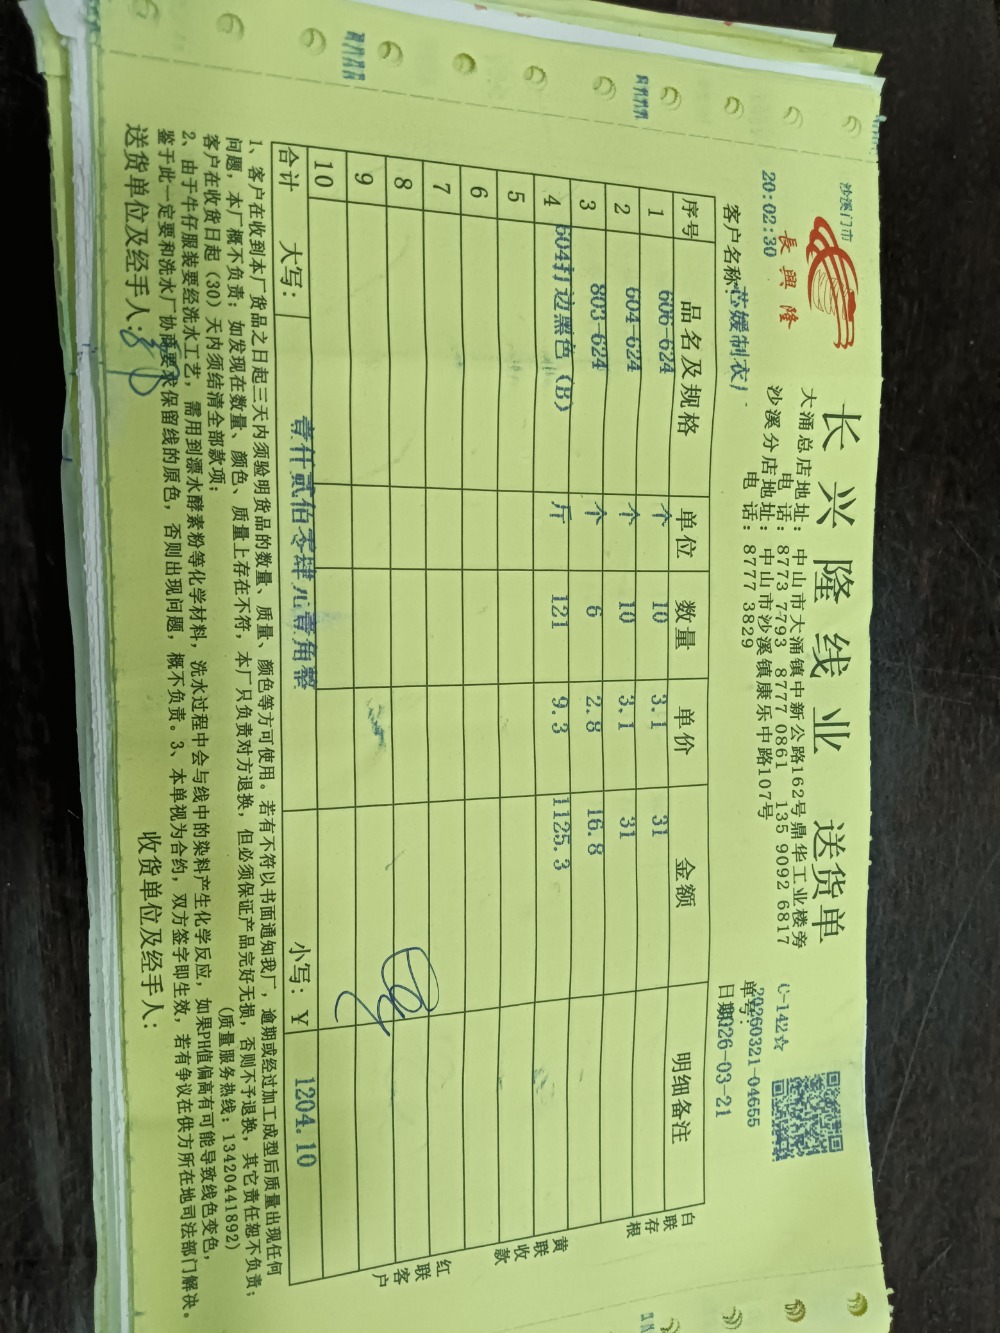 沙溪门市
長興隆
20:02:30
长兴隆线业 送货单
大涌总店地址: 中山市大涌镇中新公路162号鼎华工业楼旁
电话: 8773 7793 8777 0861 135 9092 6817
沙溪分店地址: 中山市沙溪镇康乐中路107号
电话: 8777 3829
C-142☆
单号: 20260321-04655
日期: 2026-03-21
客户名称: 芯媛制衣厂
序号 品名及规格 单位 数量 单价 金额 明细备注
1 606-624 个 10 3.1 31
2 604-624 个 10 3.1 31
3 803-624 个 6 2.8 16.8
4 604打边黑色 (B) 斤 121 9.3 1125.3
5
6
7
8
9
10
合计 大写: 壹仟贰佰零肆元壹角整 小写: ¥ 1204.10
白联存根
黄联收款
红联客户
1、客户在收到本厂货品之日起三天内须验明货品的数量、质量、颜色等方可使用。若有不符以书面通知我厂,逾期或经过加工成型后质量出现任何
问题,本厂概不负责;如发现在数量、颜色、质量上存在不符,本厂只负责对方退换,但必须保证产品完好无损,否则不予退换,其它责任恕不负责;
客户在收货日起(30)天内须结清全部款项; (质量服务热线:13420441892)
2、由于牛仔服装要经洗水工艺,需用到漂水酵素粉等化学材料,洗水过程中会与线中的染料产生化学反应,如果PH值偏高有可能导致线色变色,
鉴于此一定要和洗水厂协商要求保留线的原色,否则出现问题,概不负责。3、本单视为合约,双方签字即生效,若有争议在供方所在地司法部门解决。
送货单位及经手人: 收货单位及经手人: